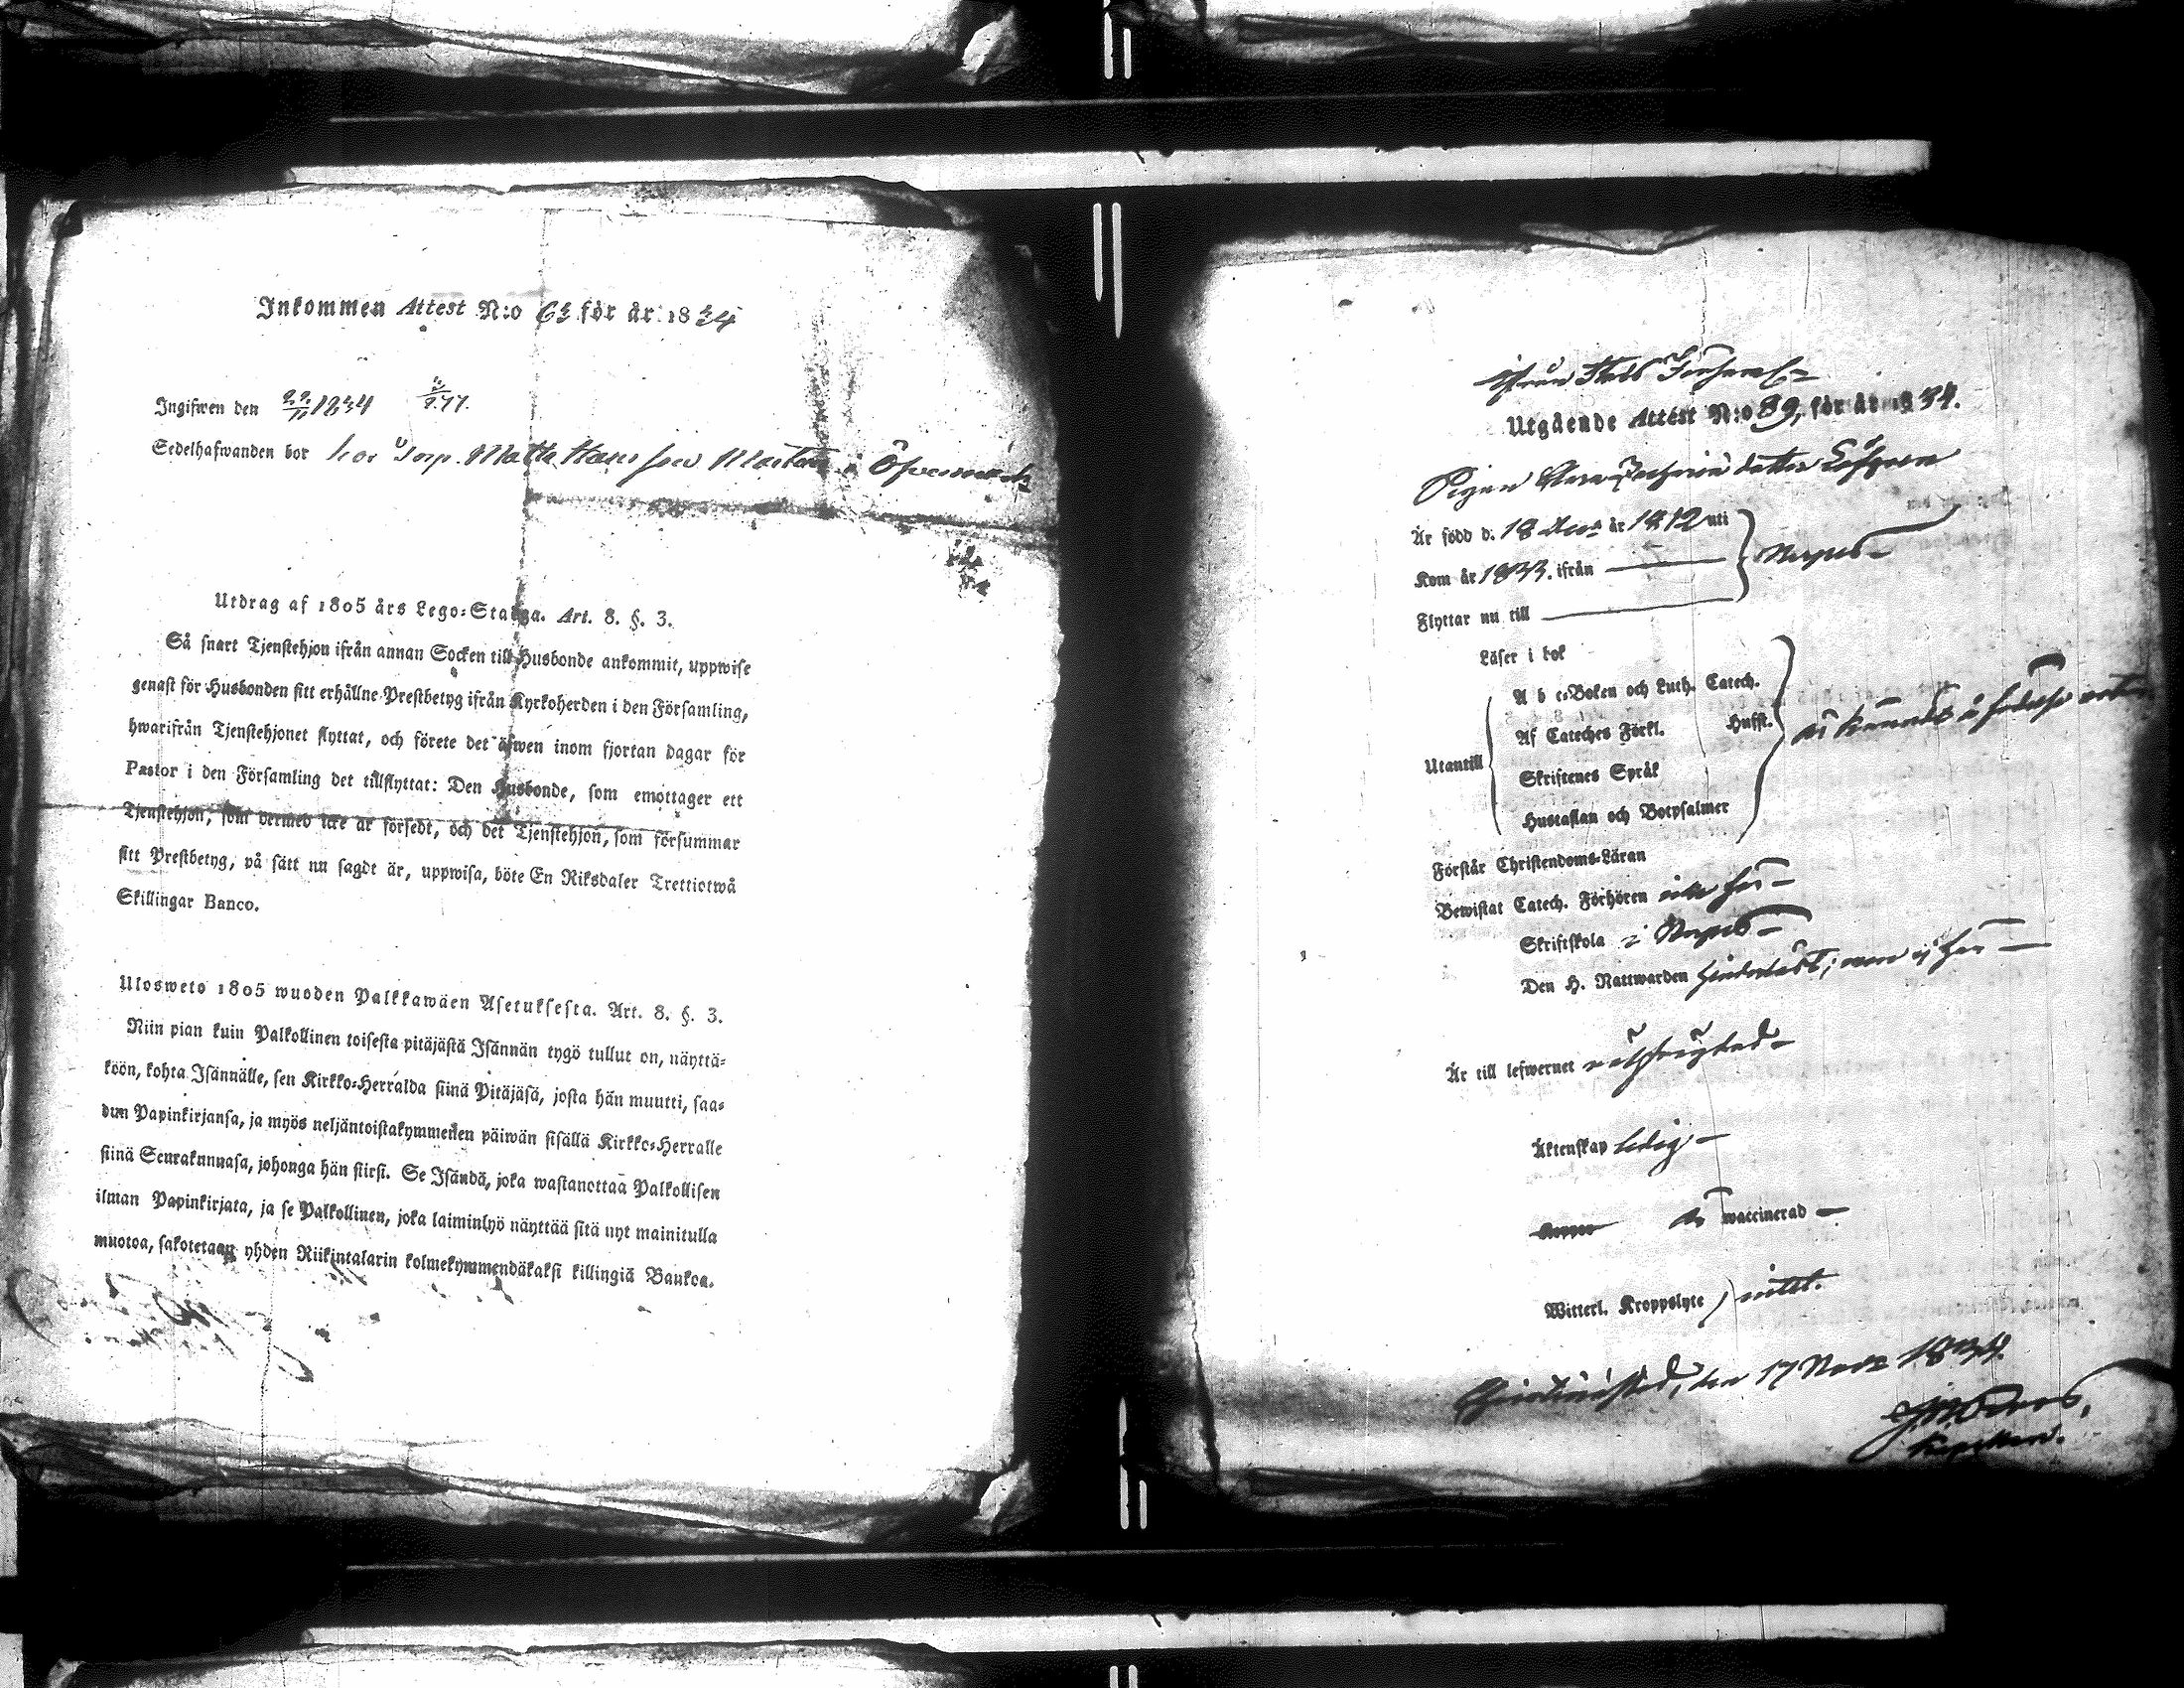 Inkommen Attest N:o 63 för år 1834
Ingifwen den 22/11 1834
Sedelhafwanden bor hos Torp. Matts Hansson
Utdrag af 1805 års Lego-Stadga. Art. 8. §. 3.
Så snart Tjenstehjon ifrån annan Socken till Husbonde ankommit, uppwise
genast för Husbonden sitt erhållne Prestbetyg ifrån Kyrkoherden i den Församling,
hwarifrån Tjenstehjonet flyttat, och förete det äfwen inom fjortan dagar för
Pastor i den Församling det tillflyttat: Den Husbonde, som emottager ett
Tjenstehjon, som dermed icke är försedt, och det Tjenstehjon, som försummar
sitt Prestbetyg, på sätt nu sagdt är, uppwisa, böte En Riksdaler Trettiotwå
Skillingar Banco.
Ulosweto 1805 wuoden Palkkawäen Asetuksesta. Art. 8. §. 3.
Niin pian kuin Palkollinen toisesta pitäjästä Isännän tygö tullut on, näyttä-
köön, kohta Isännälle, sen Kirkko-Herralda siinä Pitäjäsä, josta hän muutti, saa-
dun Papinkirjansa, ja myös neljäntoistakymmenen päiwän sisällä Kirkko-Herralle
siinä Seurakunnasa, johonga hän siirsi. Se Isändä, joka wastanottaa Palkollisen
ilman Papinkirjata, ja se Palkollinen, joka laiminlyö näyttää sitä nyt mainitulla
muotoa, sakotetaan yhden Riikintalarin kolmekymmendäkaksi killingiä Bankoa.
Utgående Attest N:o 89, för år 1834.
Pigan
Är född d. 18 år 1812 uti
Kom år 1833. ifrån Nerpes
Flyttar nu till
Läser i bok
A b c-Boken och Luth. Catech.
Af Cateches Förkl. Husst.
Utantill
Skriftenes Språk
Hustaflan och Botpsalmer
Förstår Christendoms-Läran
Bewistat Catech. Förhören icke här
Skriftskola i Nerpes
Den H. Nattwarden hinderlöst; men ej här
Är till lefwernet wälfrejdad
Äktenskap ledig
Koppor är waccinerad
Witterl. Kroppslyte intet.
Christinestad, den 17 Novr 1834.